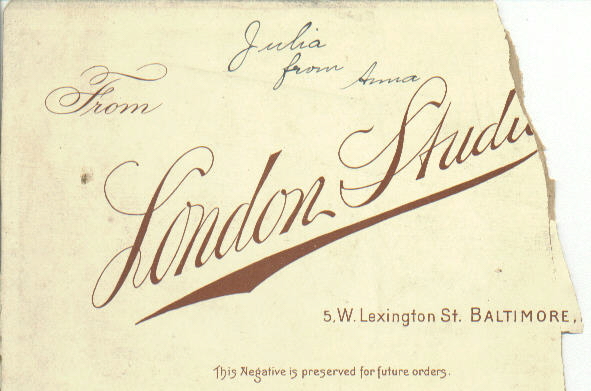 Julia
from Anna
From
London Studi
5, W. Lexington St. BALTIMORE,
This Negative is preserved for future orders.